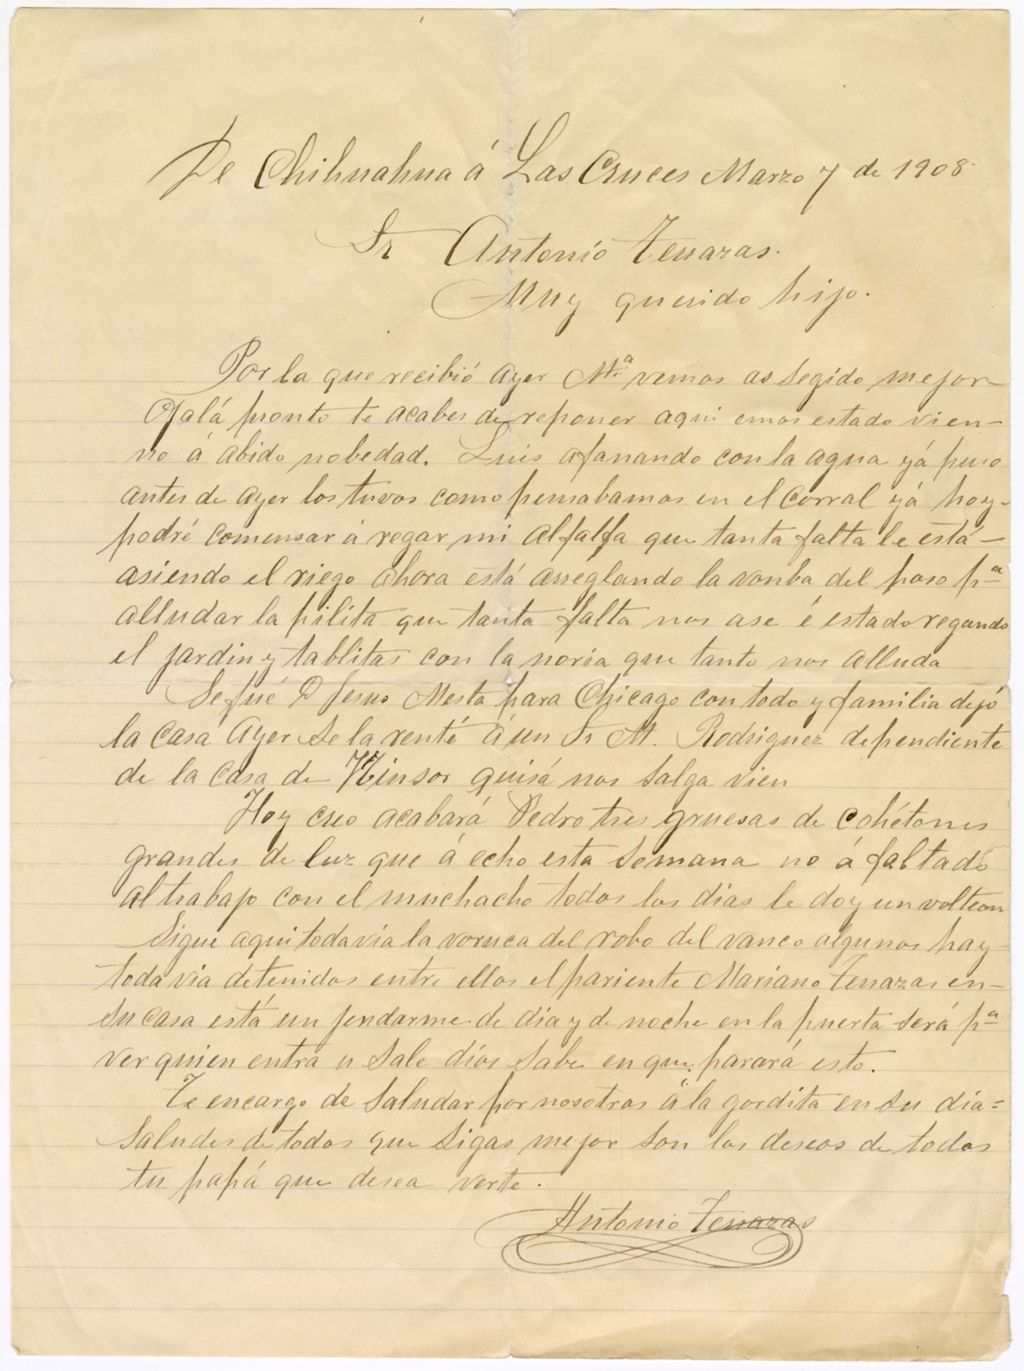 De Chihuahua á Las Cruces Marzo 7 de 1908
Sr Antonio Terrazas.
Muy querido hijo.
Por la que recibió Ayer Mª vemos as Segido mejor
Ojalá pronto te acabes de reponer aqui emos estado vien-
no á ábido nobedad. Luis afanando con la agua yá puso
antes de ayer los tuvos como pensabamos en el Corral yá hoy-
podré Comensar á regar mi Alfalfa que tanta falta le está-
asiendo el riego ahora está arreglando la vonba del poso pª
alludar la pilita que tanta falta nos ase é estado regando
el jardin y tablitas con la noria que tanto nos alluda
Se fué D Jesus Mesta para Chicago con todo y familia dejó
la Casa Ayer Se la renté á un Sr M. Rodriguez dependiente
de la Casa de quisá nos Salga vien
Hoy creo acabará Pedro tres gruesas de Cohétones
grandes de luz que á echo esta Semana no á faltado
al trabajo con el muchacho todos los dias le doy un volteon
Sigue aqui todavia la voruca del robo del vanco algunos hay-
toda via detenidos entre ellos el pariente Mariano Terrazas en-
Su casa está un jendarme de dia y de noche en la puerta Será pª
ver quien entra u Sale dios Sabe en que parará esto.
Te encargo de Saludar por nosotros á la gordita en Su dia-
Saludes de todos que Sigas mejor Son los deseos de todos
tu papá que desea verte.
Antonio Terrazas